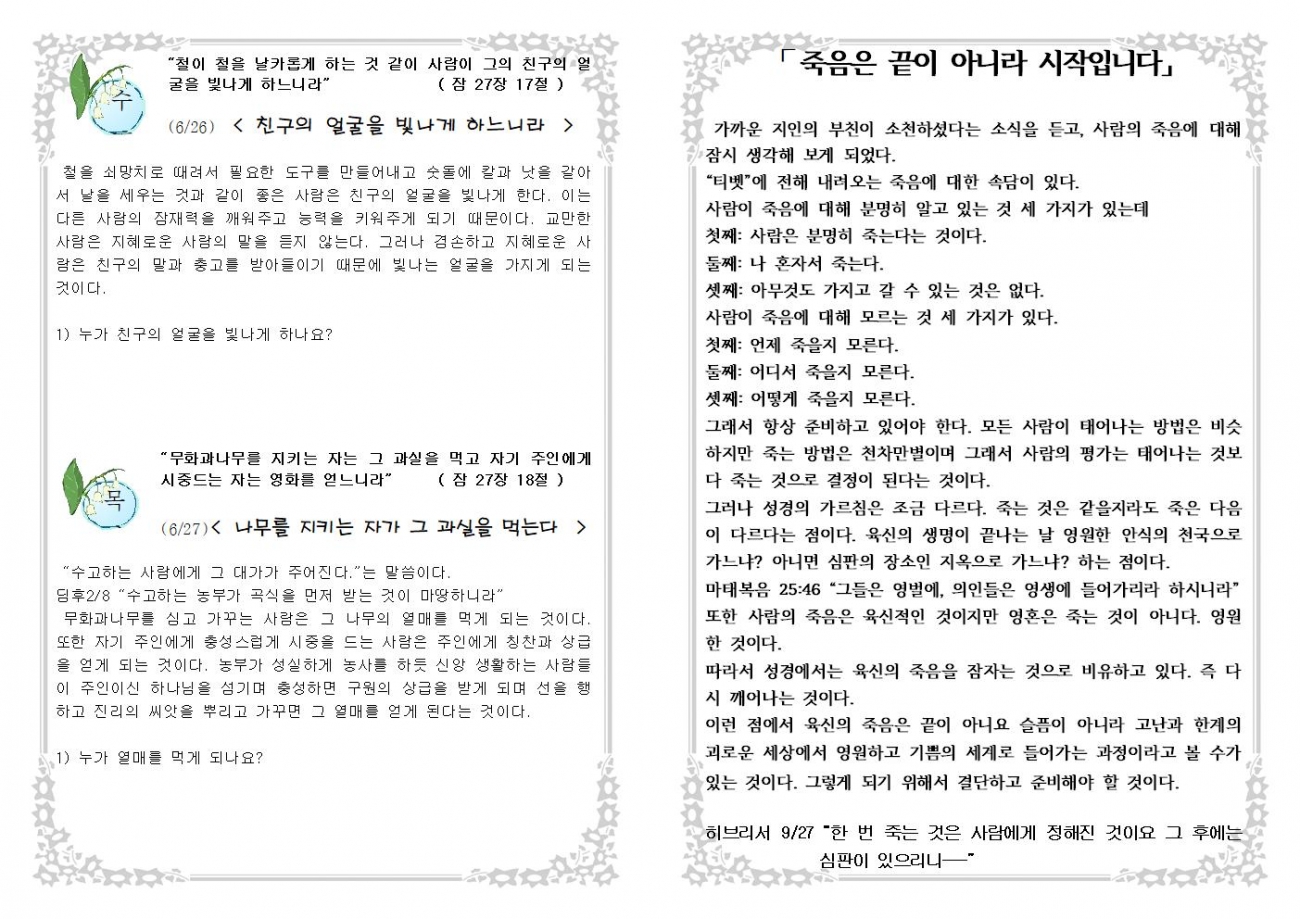 “철이 철을 날카롭게 하는 것 같이 사람이 그의 친구의 얼
굴을 빛나게 하느니라” ( 잠 27장 17절 )
수
(6/26) < 친구의 얼굴을 빛나게 하느니라 >
철을 쇠망치로 때려서 필요한 도구를 만들어내고 숫돌에 칼과 낫을 갈아
서 날을 세우는 것과 같이 좋은 사람은 친구의 얼굴을 빛나게 한다. 이는
다른 사람의 잠재력을 깨워주고 능력을 키워주게 되기 때문이다. 교만한
사람은 지혜로운 사람의 말을 듣지 않는다. 그러나 겸손하고 지혜로운 사
람은 친구의 말과 충고를 받아들이기 때문에 빛나는 얼굴을 가지게 되는
것이다.
1) 누가 친구의 얼굴을 빛나게 하나요?
“무화과나무를 지키는 자는 그 과실을 먹고 자기 주인에게
시중드는 자는 영화를 얻느니라” ( 잠 27장 18절 )
목
(6/27)< 나무를 지키는 자가 그 과실을 먹는다 >
“수고하는 사람에게 그 대가가 주어진다.”는 말씀이다.
딤후2/8 “수고하는 농부가 곡식을 먼저 받는 것이 마땅하니라”
무화과나무를 심고 가꾸는 사람은 그 나무의 열매를 먹게 되는 것이다.
또한 자기 주인에게 충성스럽게 시중을 드는 사람은 주인에게 칭찬과 상급
을 얻게 되는 것이다. 농부가 성실하게 농사를 하듯 신앙 생활하는 사람들
이 주인이신 하나님을 섬기며 충성하면 구원의 상급을 받게 되며 선을 행
하고 진리의 씨앗을 뿌리고 가꾸면 그 열매를 얻게 된다는 것이다.
1) 누가 열매를 먹게 되나요?
「죽음은 끝이 아니라 시작입니다」
가까운 지인의 부친이 소천하셨다는 소식을 듣고, 사람의 죽음에 대해
잠시 생각해 보게 되었다.
“티벳”에 전해 내려오는 죽음에 대한 속담이 있다.
사람이 죽음에 대해 분명히 알고 있는 것 세 가지가 있는데
첫째: 사람은 분명히 죽는다는 것이다.
둘째: 나 혼자서 죽는다.
셋째: 아무것도 가지고 갈 수 있는 것은 없다.
사람이 죽음에 대해 모르는 것 세 가지가 있다.
첫째: 언제 죽을지 모른다.
둘째: 어디서 죽을지 모른다.
셋째: 어떻게 죽을지 모른다.
그래서 항상 준비하고 있어야 한다. 모든 사람이 태어나는 방법은 비슷
하지만 죽는 방법은 천차만별이며 그래서 사람의 평가는 태어나는 것보
다 죽는 것으로 결정이 된다는 것이다.
그러나 성경의 가르침은 조금 다르다. 죽는 것은 같을지라도 죽은 다음
이 다르다는 점이다. 육신의 생명이 끝나는 날 영원한 안식의 천국으로
가느냐? 아니면 심판의 장소인 지옥으로 가느냐? 하는 점이다.
마태복음 25:46 “그들은 영벌에, 의인들은 영생에 들어가리라 하시니라”
또한 사람의 죽음은 육신적인 것이지만 영혼은 죽는 것이 아니다. 영원
한 것이다.
따라서 성경에서는 육신의 죽음을 잠자는 것으로 비유하고 있다. 즉 다
시 깨어나는 것이다.
이런 점에서 육신의 죽음은 끝이 아니요 슬픔이 아니라 고난과 한계의
괴로운 세상에서 영원하고 기쁨의 세계로 들어가는 과정이라고 볼 수가
있는 것이다. 그렇게 되기 위해서 결단하고 준비해야 할 것이다.
히브리서 9/27 “한 번 죽는 것은 사람에게 정해진 것이요 그 후에는
심판이 있으리니──”